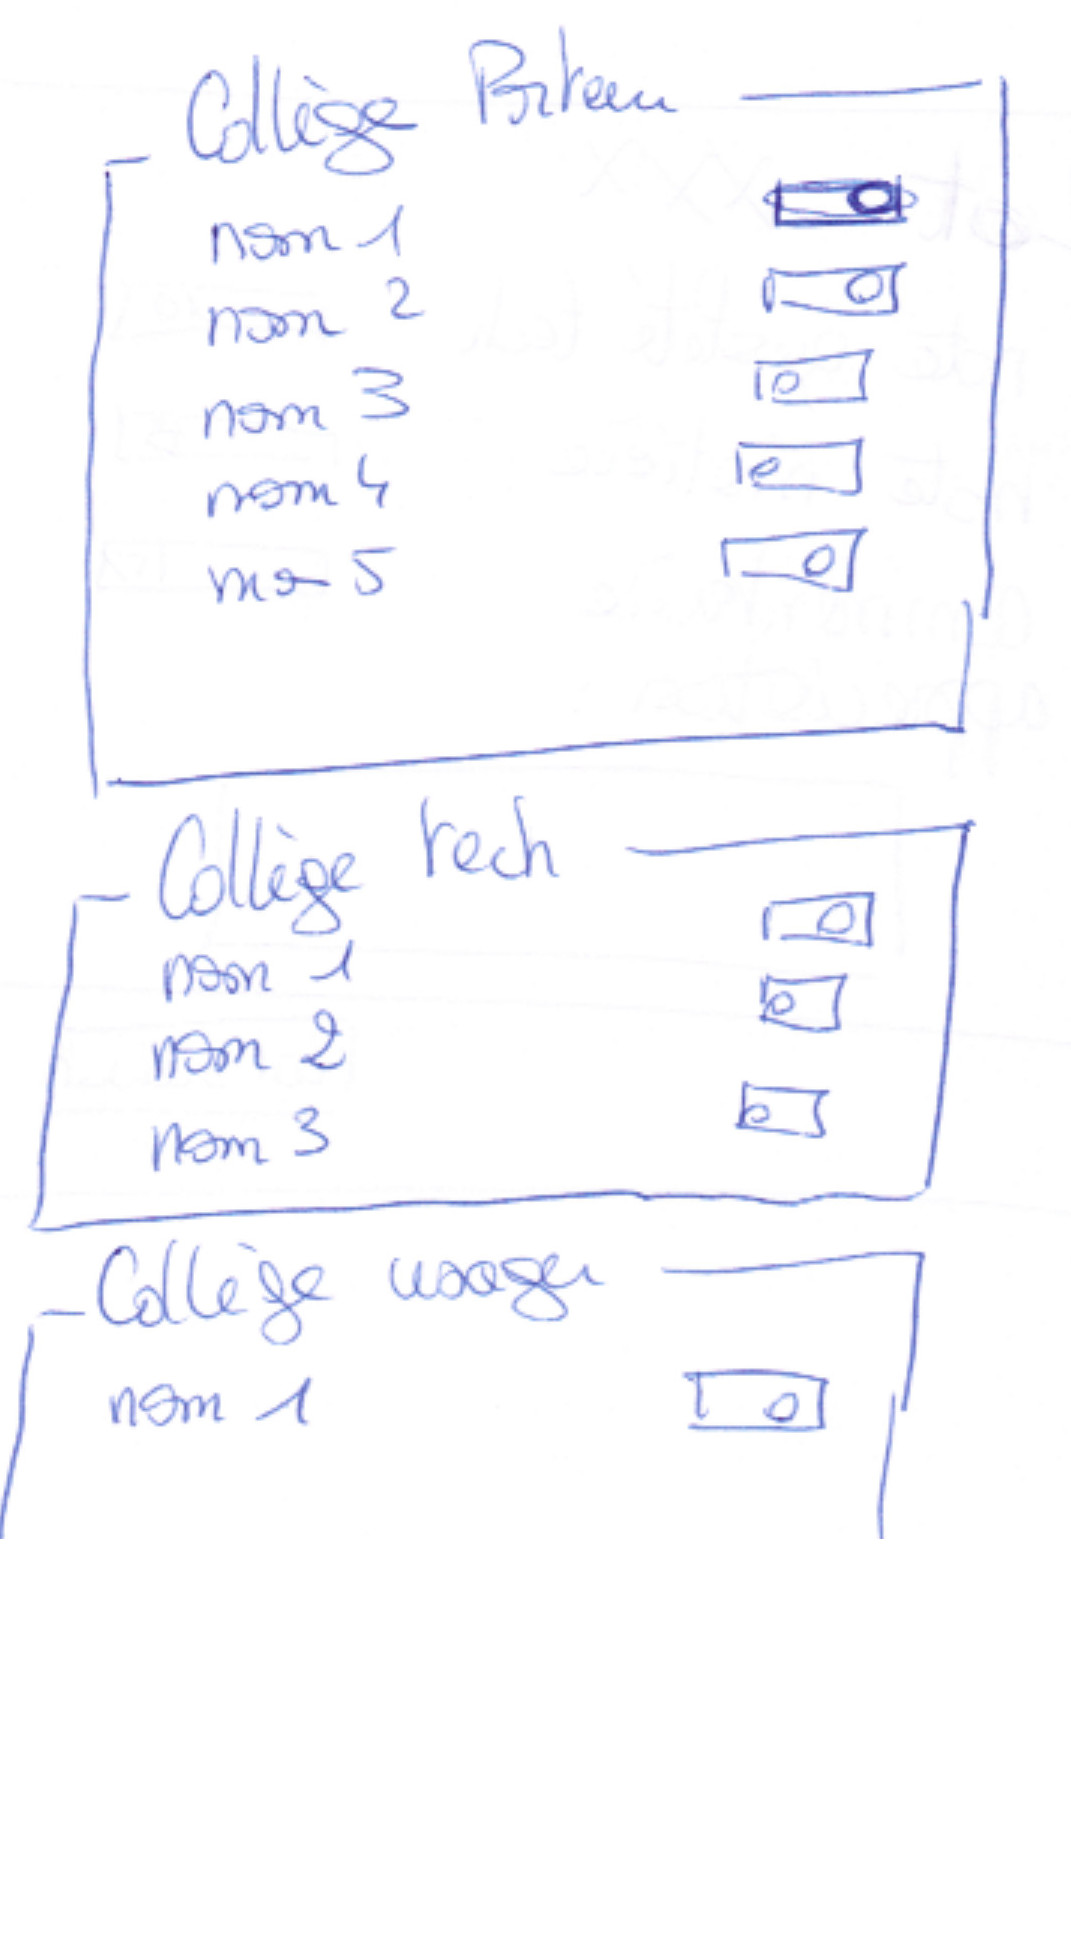 Collège
nom 1
nom 2
nom 3
nom 4
5
Collège tech
nom 1
nom 2
nom 3
Collège usager
nom 1